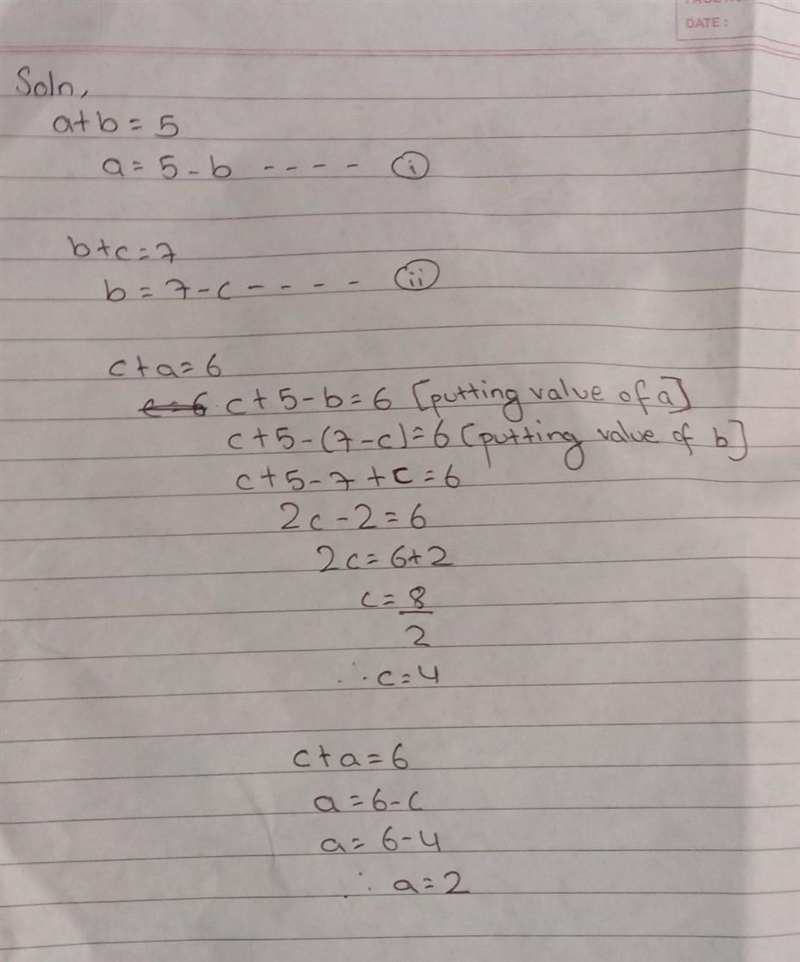 DATE:
Soln,
a+b=5
a=5-b ---- (i)
b+c=7
b=7-c---- (ii)
c+a=6
c+5-b=6 [putting value of a]
c+5-(7-c)=6 [putting value of b]
c+5-7+c=6
2c-2=6
2c=6+2
c=8
2
∴c=4
c+a=6
a=6-c
a=6-4
∴ a=2